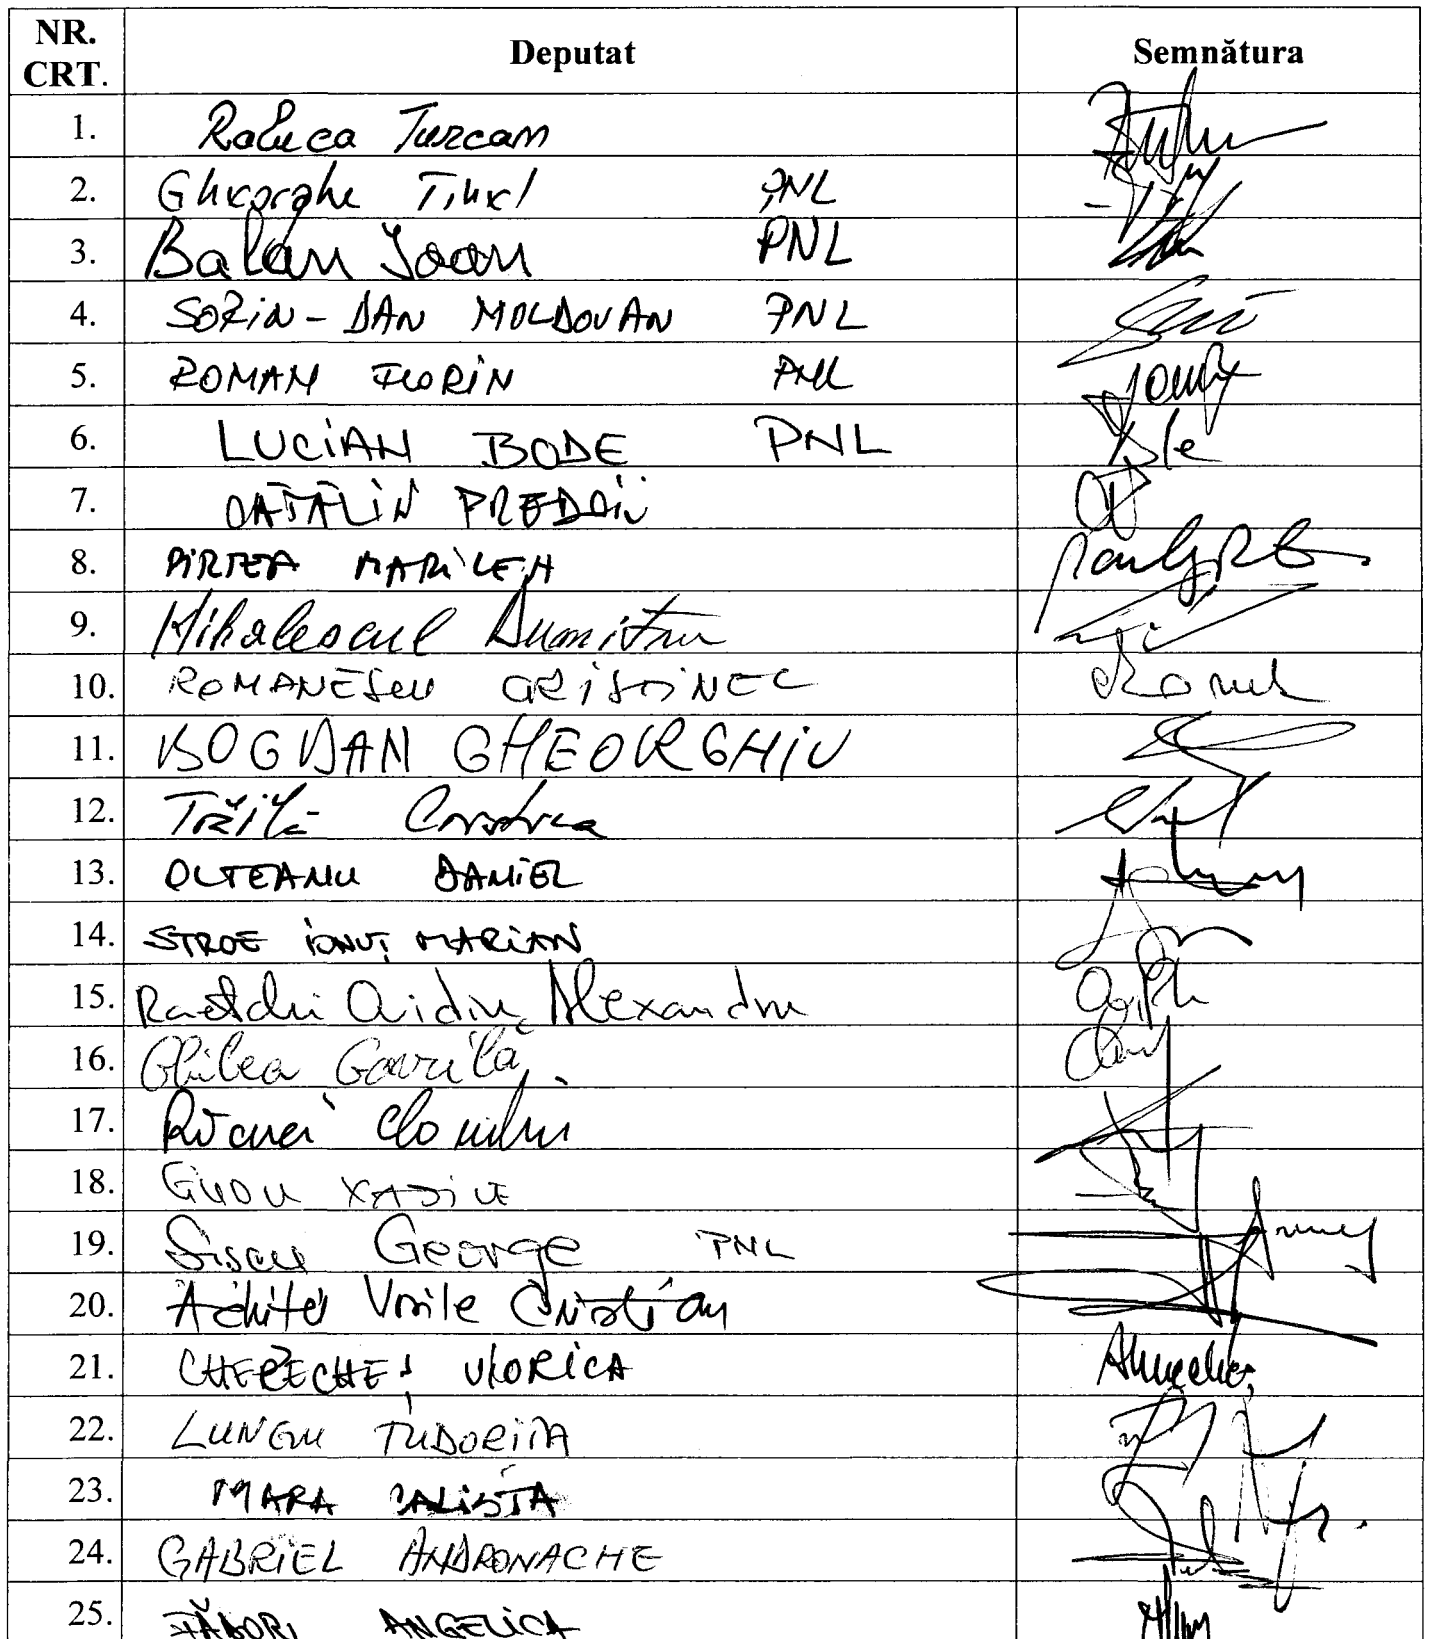 NR. CRT. Deputat Semnătura
1. Raluca Turcan
2. Gheorghe Tinel PNL
3. Balan Ioan PNL
4. SORIN-DAN MOLDOVAN PNL
5. ROMAN FLORIN PNL
6. LUCIAN BODE PNL
7. CĂTĂLIN PREDOIU
8. PIRTEA MARILEN
9. Mihalescul Dumitru
10. ROMANESCU CRISTINEL
11. BOGDAN GHEORGHIU
12. Trăilă Cristina
13. OLTEANU DANIEL
14. STROE IONUȚ MARIAN
15. Raetchi Ovidiu Alexandru
16. Ghilea Gavrilă
17. Răcuci Claudiu
18. GUDU
19. Siscu George PNL
20. Achiței Vasile Cristian
21. CHERECHEȘ VIORICA
22. LUNGU TUDORIȚA
23. MARA CALISTA
24. GABRIEL ANDRONACHE
25. FĂDOR ANGELICA